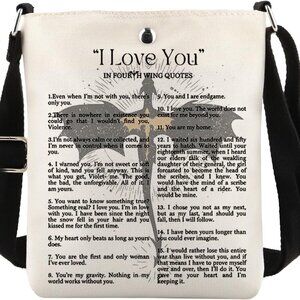 “I Love You”
IN FOURTH WING QUOTES
1.Even when I'm not with you, there's
only you.
2.There is nowhere in existence you
could go that I wouldn't find you,
Violence.
3.I'm not always calm or collected, and
I'm never in control when it comes to
you.
4. I warned you, I'm not sweet or soft
or kind, and you fell anyway. This is
what you get, Violet- me. The good,
the bad, the unforgivable. All of it. I
am yours.
5. You want to know something true?
Something real? I love you. I'm in love
with you. I have been since the night
the snow fell in your hair and you
kissed me for the first time.
6. My heart only beats as long as yours
does.
7. You are the first and only woman
I've ever loved.
8. You're my gravity. Nothing in my
world works without you.
9. You and I are endgame.
10. I love you. The world does not
11. You are my home.
12. I waited six hundred and fifty
years to hatch. Waited until your
eighteenth summer, when I heard
our elders talk of the weakling
daughter of their general, the girl
forecasted to become the head of
the scribes, and I knew. You
would have the mind of a scribe
and the heart of a rider. You
would be mine.
13. I chose you not as my next,
but as my last, and should you
fall, then I will follow.
14. I have been yours longer than
you could ever imagine.
15. I would rather lose this entire
war than live without you, and if
that means I have to prove myself
over and over, then I'll do it. You
gave me your heart and I'm
keeping it.